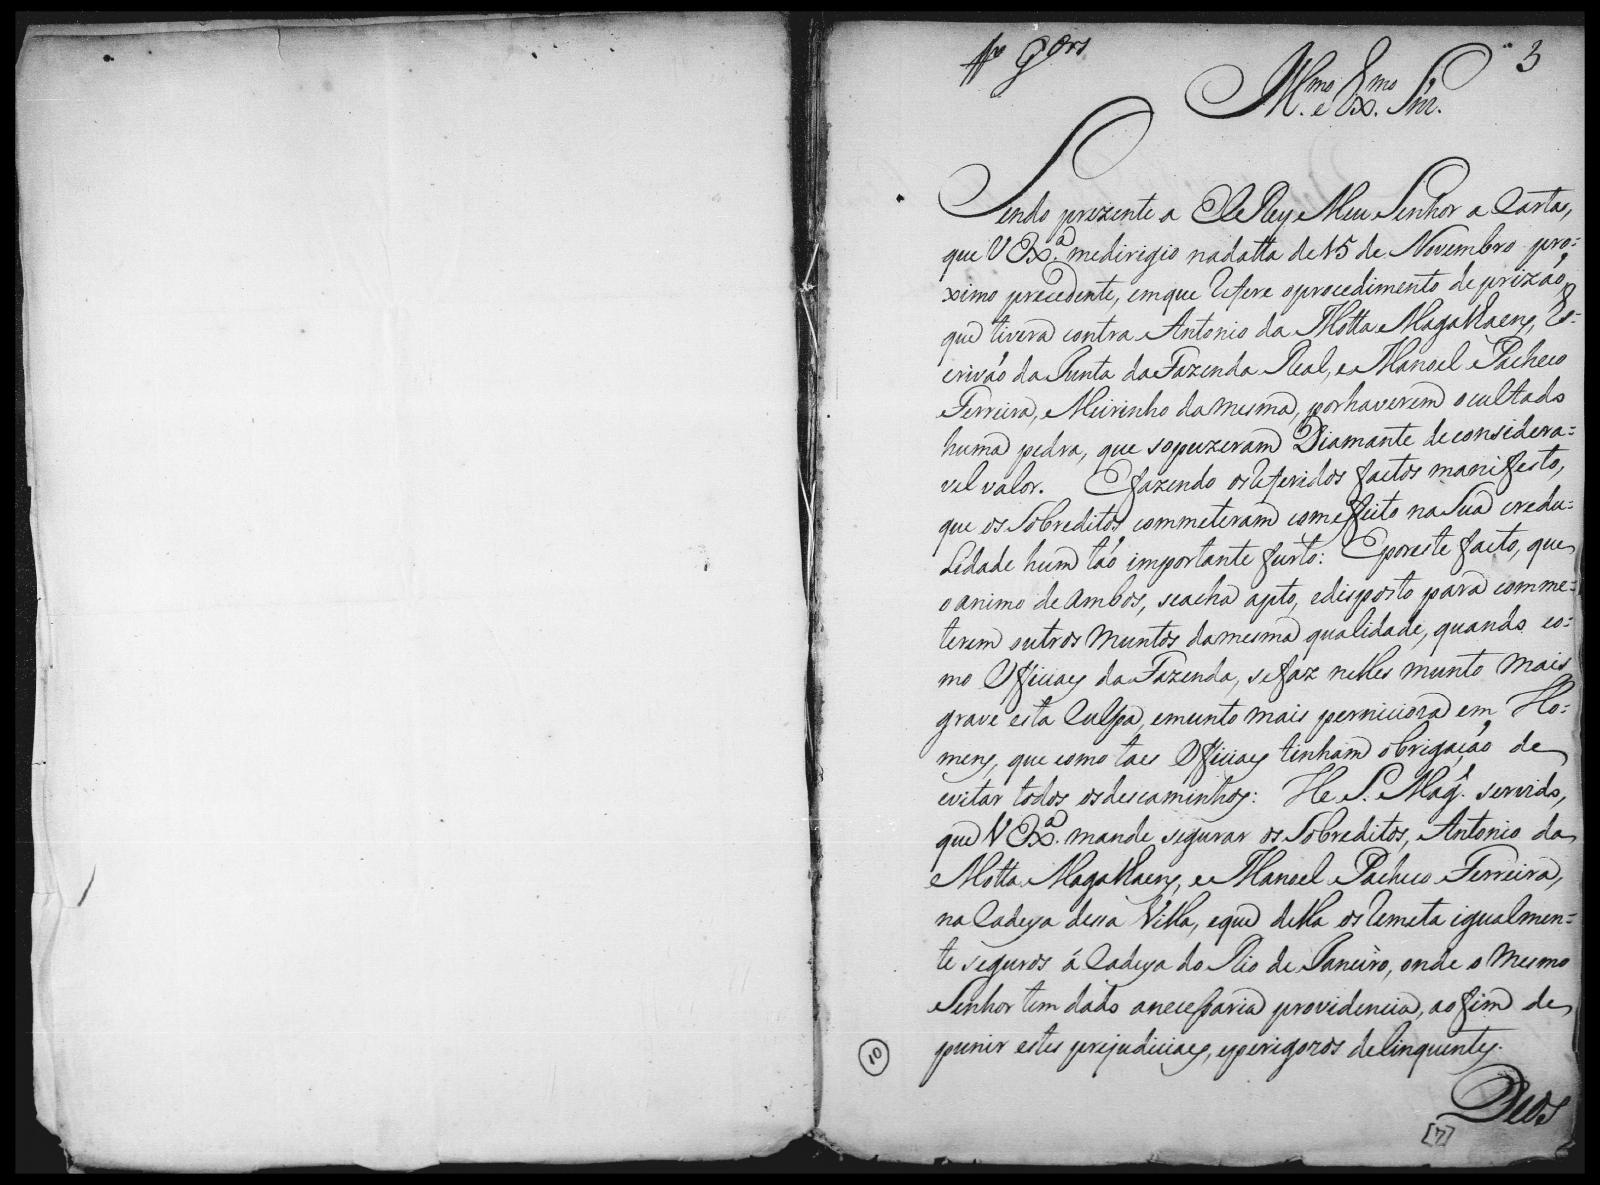 3
Ill.mo e Ex.mo Snr.
Sendo prezente a ElRey Meu Senhor a Carta,
que V Ex.a medirigio nadatta de 15 de Novembro pro=
ximo precedente, emque refere oprocedimento de prizaõ,
que tivera contra Antonio da Motta Magalhaens, Es=
crivaõ da Junta daFazenda Real, e Manoel Pacheco
Ferreira, Meirinho damesma, porhaverem ocultado
huma pedra, que sopuzeram Diamante deconsidera=
vel valor. E fazendo osreferidos factos manifesto,
que os Sobreditos commeteram comeffeito na Sua credu=
lidade hum taõ importante furto: E poreste facto, que
o animo de ambos, seacha apto, edisposto para comme=
terem outros muntos damesma qualidade, quando co=
mo Officiaes da Fazenda, sefaz nelles munto mais
grave esta Culpa, emunto mais perniciosa em Ho=
mens, que como taes Officiaes tinham obrigaçaõ de
evitar todos osdescaminhos: He S. Mag.e servido,
que V Ex.a mande segurar os Sobreditos, Antonio da
Motta Magalhaens, e Manoel Pacheco Ferreira,
na Cadeya dessa Villa, eque della os remeta igualmen=
te seguros á Cadeya do Rio de Janeiro, onde o mesmo
Senhor tem dado anecessaria providencia, aofim de
punir estes prejudiciaes, eperigozos delinquentes.
Deos
10
[7]